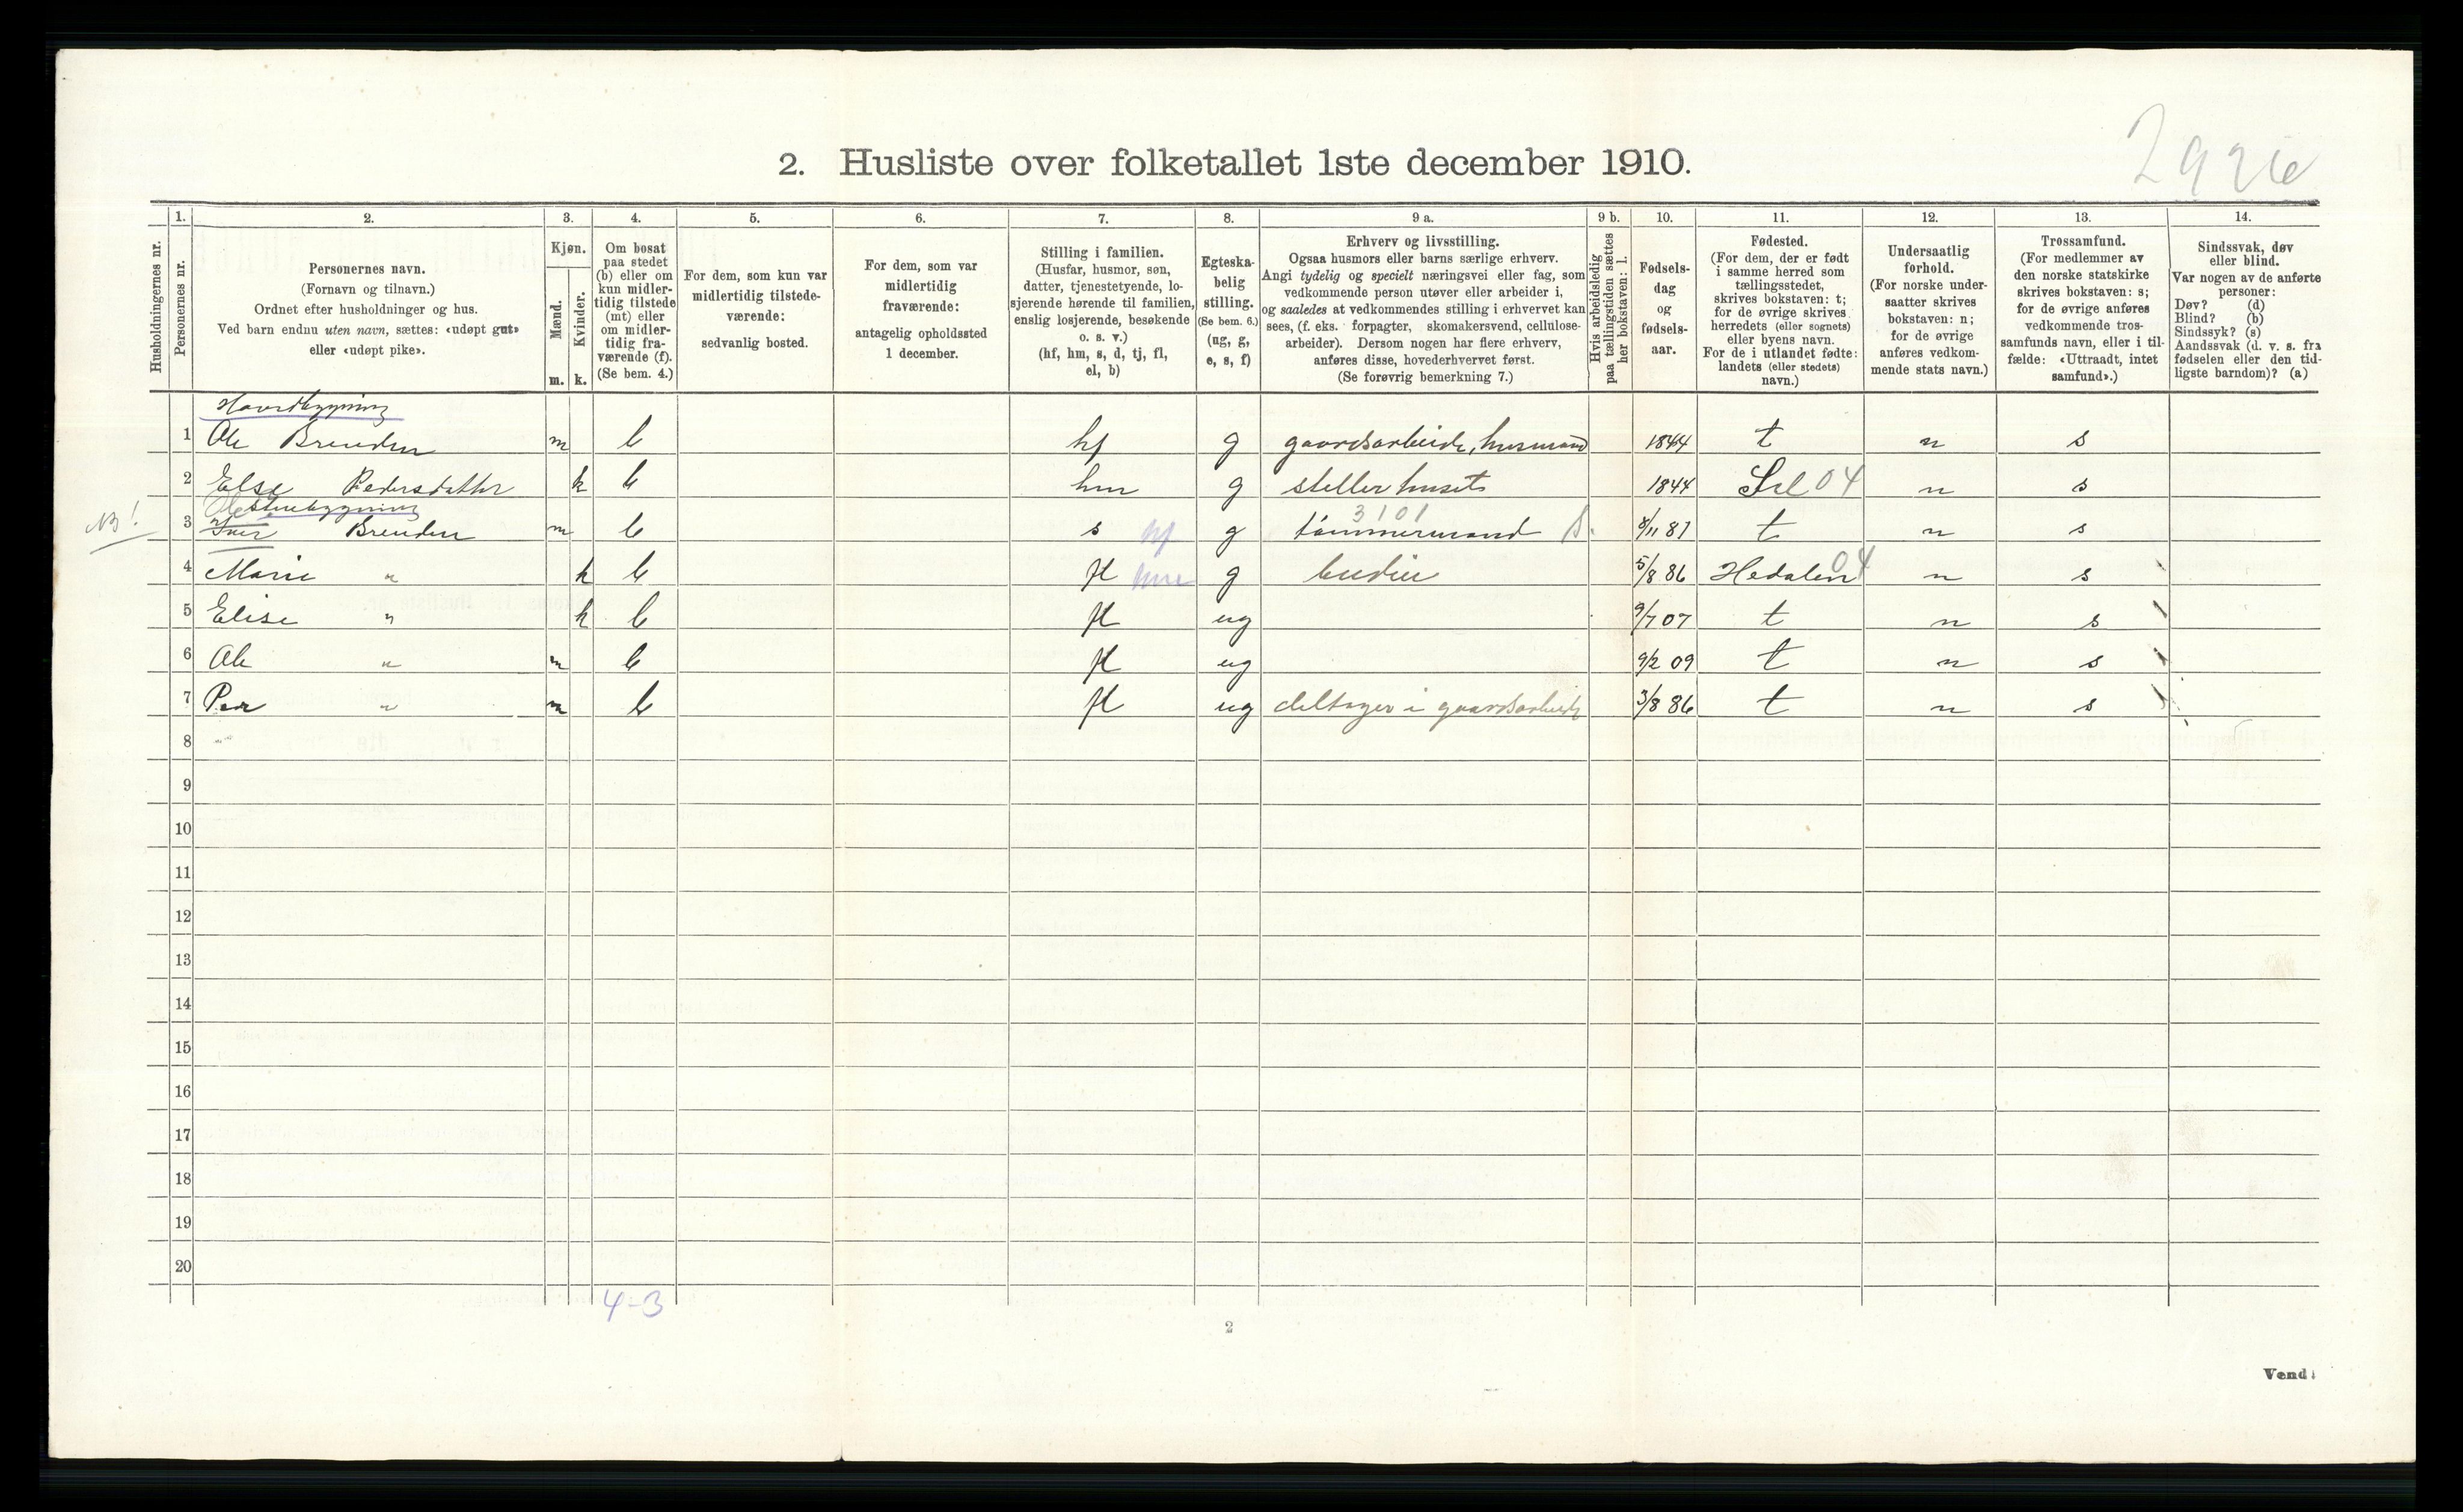 2. Husliste over folketallet 1ste december 1910.
1. 2. 3. 4. 5. 6. 7. 8. 9 a. 9 b. 10. 11. 12. 13. 14.
Husholdningernes nr.
Personernes nr.
Personernes navn.
(Fornavn og tilnavn.)
Ordnet efter husholdninger og hus.
Ved barn endnu uten navn, sættes: «udøpt gut»
eller «udøpt pike».
Kjøn.
Mænd.
Kvinder.
m. k.
Om bosat
paa stedet
(b) eller om
kun midler-
tidig tilstede
(mt) eller
om midler-
tidig fra-
værende (f).
(Se bem. 4.)
For dem, som kun var
midlertidig tilstede-
værende:
sedvanlig bosted.
For dem, som var
midlertidig
fraværende:
antagelig opholdssted
1 december.
Stilling i familien.
(Husfar, husmor, søn,
datter, tjenestetyende, lo-
sjerende hørende til familien,
enslig losjerende, besøkende
o. s. v.)
(hf, hm, s, d, tj, fl,
el, b)
Egteska-
belig
stilling.
(Se bem. 6.)
(ug, g,
e, s, f)
Erhverv og livsstilling.
Ogsaa husmors eller barns særlige erhverv.
Angi tydelig og specielt næringsvei eller fag, som
vedkommende person utøver eller arbeider i,
og saaledes at vedkommendes stilling i erhvervet kan
sees, (f. eks. forpagter, skomakersvend, cellulose-
arbeider). Dersom nogen har flere erhverv,
anføres disse, hovederhvervet først.
(Se forøvrig bemerkning 7.)
Hvis arbeidsledig
paa tællingstiden sættes
her bokstaven: l.
Fødsels-
dag
og
fødsels-
aar.
Fødested.
(For dem, der er født
i samme herred som
tællingsstedet,
skrives bokstaven: t;
for de øvrige skrives
herredets (eller sognets)
eller byens navn.
For de i utlandet fødte:
landets (eller stedets)
navn.)
Undersaatlig
forhold.
(For norske under-
saatter skrives
bokstaven: n;
for de øvrige
anføres vedkom-
mende stats navn.)
Trossamfund.
(For medlemmer av
den norske statskirke
skrives bokstaven: s;
for de øvrige anføres
vedkommende tros-
samfunds navn, eller i til-
fælde: «Uttraadt, intet
samfund».)
Sindssvak, døv
eller blind.
Var nogen av de anførte
personer:
Døv? (d)
Blind? (b)
Sindssyk? (s)
Aandssvak (d. v. s. fra
fødselen eller den tid-
ligste barndom)? (a)
Hovedbygning
1 Ole Brenden m b hf g gaardsarbeide, husmand 1844 t n s
2 Else Pedersdatter k b hm g steller huset 1844 Sel 04 n s
Stuebygning
NB! 3 Iver Ole Brenden m b s hf g tømmermand 3101 8/11 81 t n s
4 Marie " k b fl hm g budeie 5/8 86 Hedalen 04 n s
5 Elise " k b fl ug 9/7 07 t n s
6 Ole " m b fl ug 9/2 09 t n s
7 Per " m b fl ug deltager i gaardsarbeide 3/8 86 t n s
8
9
10
11
12
13
14
15
16
17
18
19
20
4-3
2
Vend!